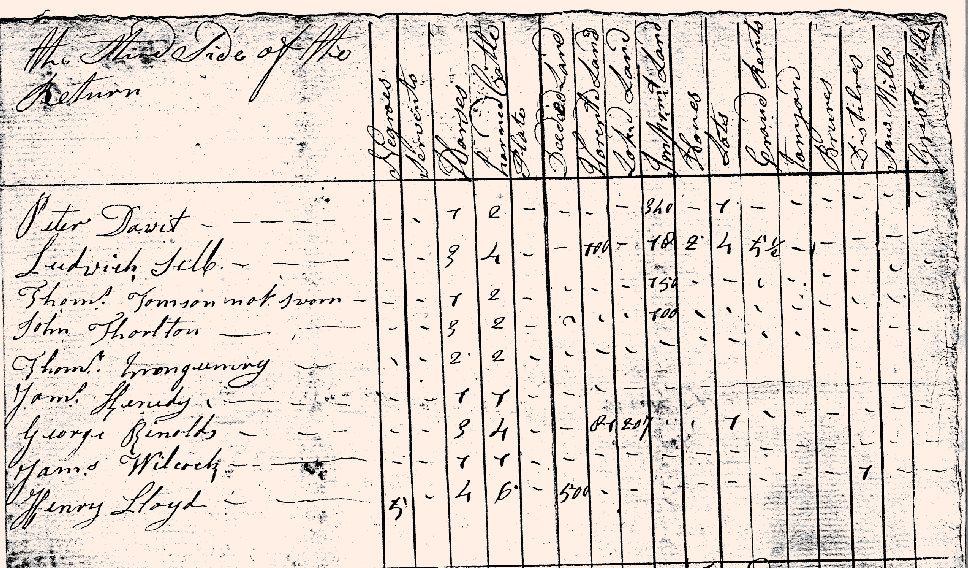 the Third Side of the
Return
Negroes Servants Horses horned Cattle Plate Deeded Land Land Land Land Homes Lots Ground Rents Tanyard Distiles Saw Mills Grist Mills
Peter Davit - - - - - - - 1 2 - - - - 340 - 1 - - - - - -
Ludvich Selb - - - - - - 3 4 - - 100 - 18 2 4 5½ - - - - -
Thoms. Tomson not sworn - - - 1 2 - - - - 150 - - - - - - - -
John Thorlton - - - - 3 2 - - - - 100 - - - - - - - -
Thoms. - - - 2 2 - - - - - - - - - - - - -
Jams. Kenedy - - - - 1 1 - - - - - - - - - - - - -
George Renolds - - - - 3 4 - - 81 207 - - 1 - - - - - -
Jams Wilcock - - - - 1 1 - - - - - - - - - - 1 - -
Henry Lloyd - - 5 - 4 6 - 500 - - - - - - - - - - -